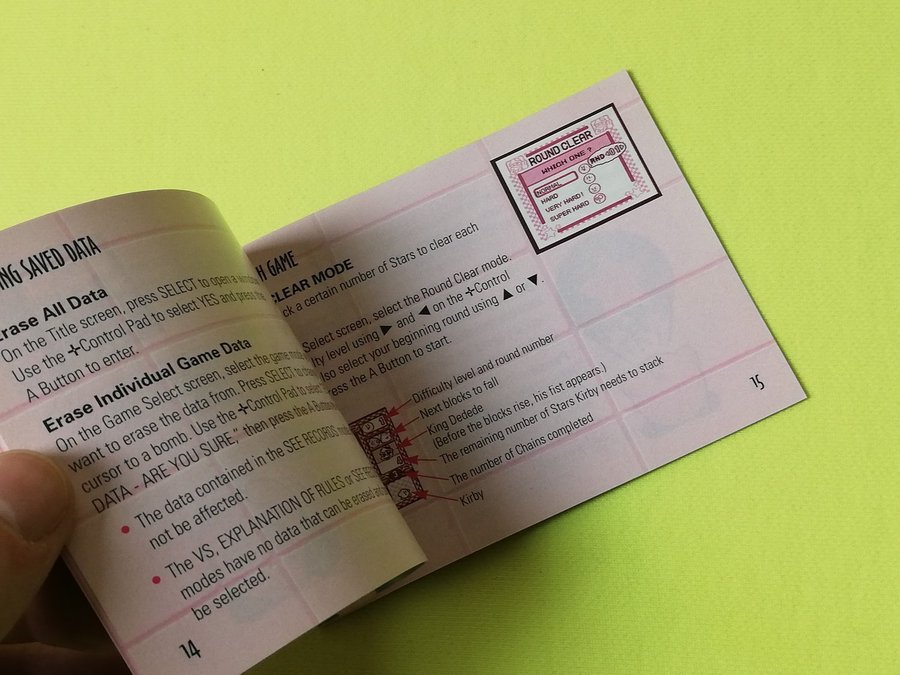 NG SAVED DATA
Erase All Data
On the Title screen, press SELECT to open a
Use the ✚Control Pad to select YES and press the
A Button to enter.
Erase Individual Game Data
On the Game Select screen, select the game mode
want to erase the data from. Press SELECT to
cursor to a bomb. Use the ✚Control Pad to select
DATA - ARE YOU SURE," then press the A Button
● The data contained in the SEE RECORDS
not be affected.
● The VS, EXPLANATION OF RULES or SEE
modes have no data that can be erased
be selected.
14
H GAME
CLEAR MODE
ck a certain number of Stars to clear each
Select screen, select the Round Clear mode.
lty level using ▶ and ◀ on the ✚Control
lso select your beginning round using ▲ or ▼.
ress the A Button to start.
Difficulty level and round number
Next blocks to fall
King Dedede
(Before the blocks rise, his fist appears.)
The remaining number of Stars Kirby needs to stack
The number of Chains completed
Kirby
15
ROUND CLEAR
WHICH ONE?
RND
NORMAL
HARD
VERY HARD!
SUPER HARD